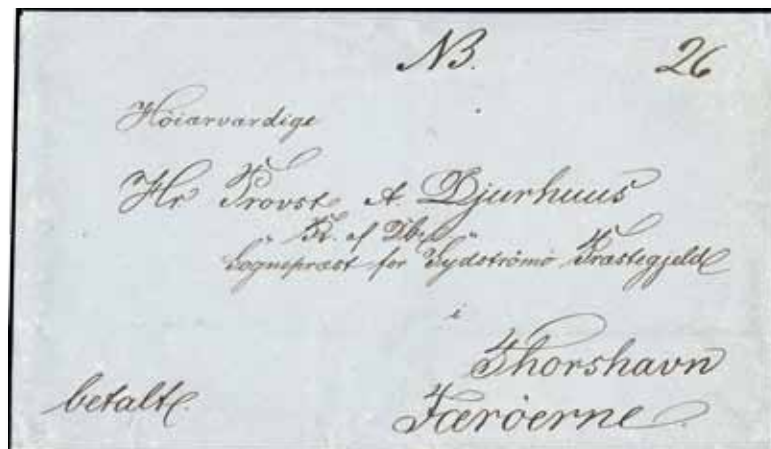 NB. 26
Høiærværdige
Hr Provst A Djurhuus
" R. af Db. "
Sognepræst for Sydströmö Præstegjeld
i
Thorshavn
betalt.
Færöerne